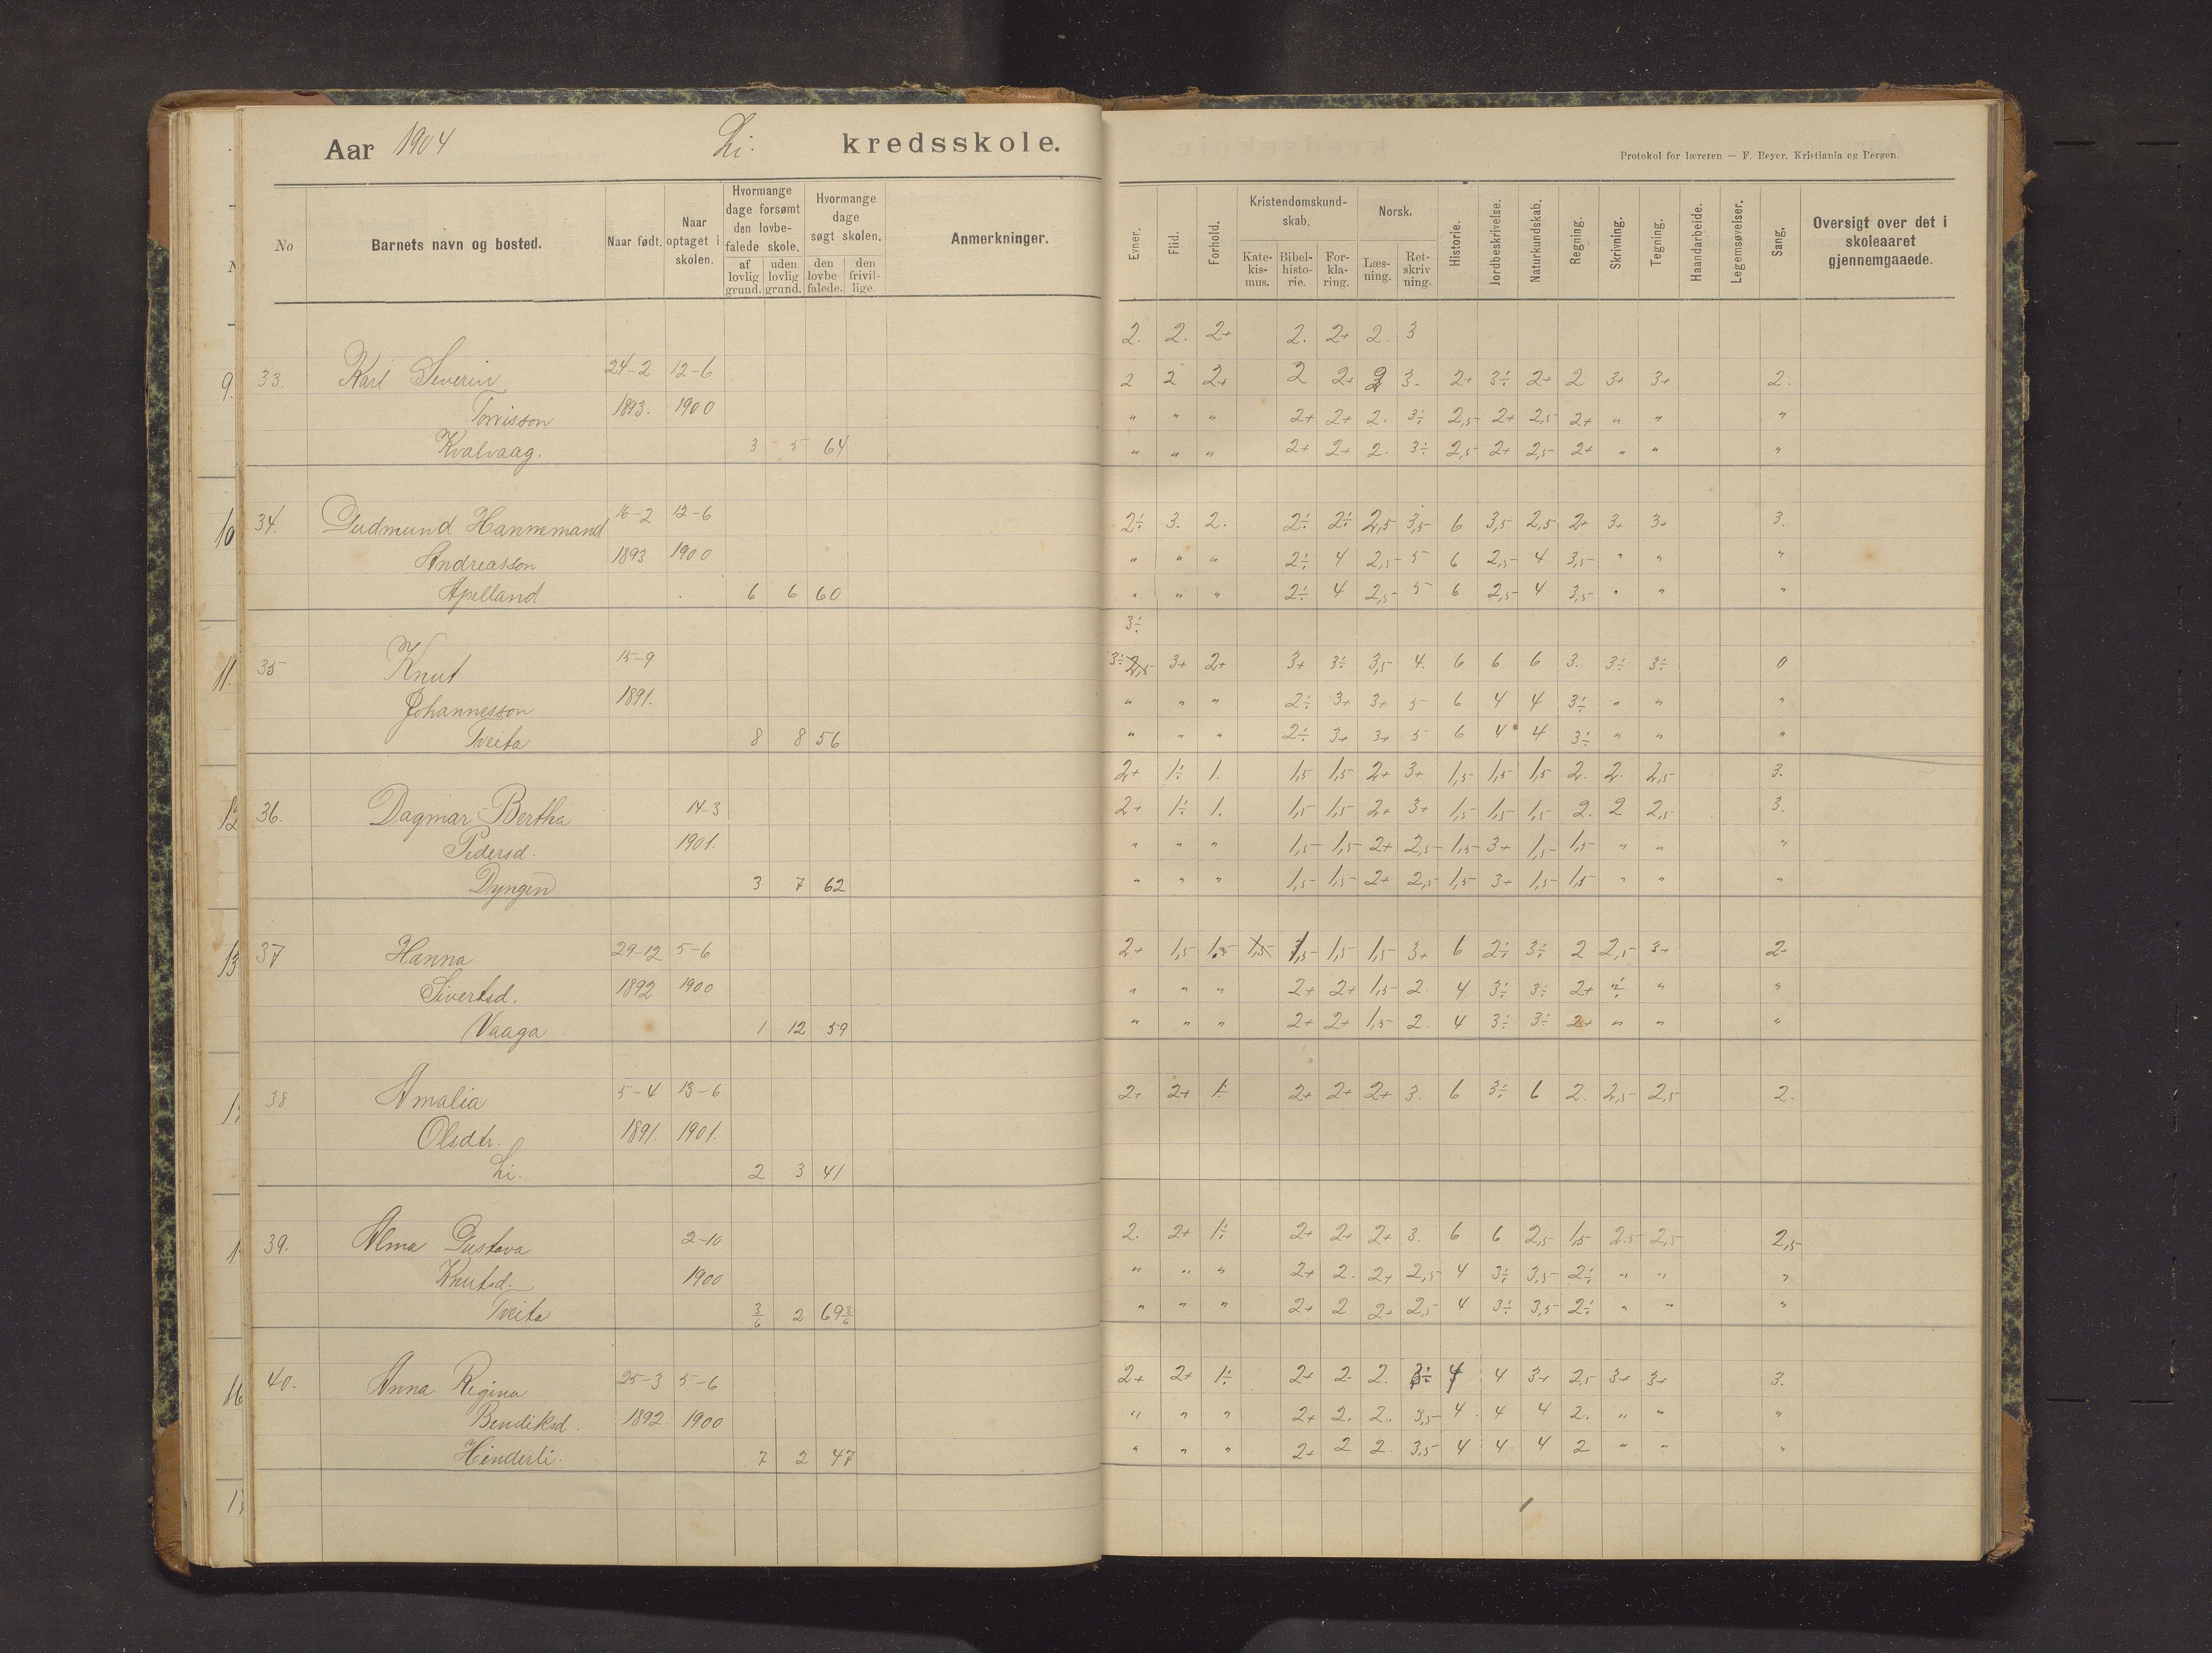 Aar 1904 Li. kredsskole.
Protokol for læreren — F. Beyer, Kristiania og Bergen.
No
Barnets navn og bosted.
Naar født.
Naar optaget i skolen.
Hvormange dage forsømt den lovbe- falede skole.
af lovlig grund.
uden lovlig grund.
Hvormange dage søgt skolen.
den lovbe- falede.
den frivil- lige.
Anmerkninger.
Evner.
Flid.
Forhold.
Kristendomskund- skab.
Kate- kis- mus.
Bibel- histo- rie.
For- kla- ring.
Norsk.
Læs- ning.
Ret- skriv ning.
Historie.
Jordbeskrivelse.
Naturkundskab.
Regning.
Skrivning.
Tegning.
Haandarbeide.
Legemsøvelser.
Sang.
Oversigt over det i skoleaaret gjennemgaaede.
2. 2. 2+ 2. 2+ 2. 3
33. Karl Severin 24-2 12-6 2 2 2+ 2 2+ 2 3. 2+ 3÷ 2+ 2 3+ 3+ 2.
Torrisson 1893. 1900 " " " 2+ 2+ 2. 3÷ 2,5 2+ 2,5 2+ " " "
Kvalvaag. 3 5 64 " " " 2+ 2+ 2. 3÷ 2,5 2+ 2,5 2+ " " "
34. Gudmund Hannemand 16-2 12-6 2÷ 3. 2. 2÷ 2÷ 2,5 3,5 6 3,5 2,5 2+ 3+ 3+ 3.
Andreasson 1893 1900 " " " 2÷ 4 2,5 5 6 2,5 4 3,5 " " "
Apelland 6 6 60 " " " 2÷ 4 2,5 5 6 2,5 4 3,5 " " "
3÷
35 Knut 15-9 3÷ 2,5 3+ 2+ 3+ 3÷ 3,5 4. 6 6 6 3. 3÷ 3÷ 0
Johannesson 1891. " " " 2÷ 3+ 3+ 5 6 4 4 3÷ " " "
Tveita 8 8 56 " " " 2÷ 3+ 3+ 5 6 4 4 3÷ " " "
2+ 1÷ 1. 1,5 1,5 2+ 3+ 1,5 1,5 1,5 2. 2. 2,5 3.
36. Dagmar Bertha 14-3 2+ 1÷ 1. 1,5 1,5 2+ 3+ 1,5 1,5 1,5 2. 2 2,5 3.
Pedersd. 1901. " " " 1,5 1,5 2+ 2,5 1,5 3+ 1,5 1,5 " " "
Dyngen 3 7 62 " " " 1,5 1,5 2+ 2,5 1,5 3+ 1,5 1,5 " " "
37 Hanna 29-12 5-6 2+ 1,5 1,5 1,5 1,5 1,5 1,5 3+ 6 2÷ 3÷ 2 2,5 3+ 2+
Sivertsd. 1892 1900 " " " 2+ 2+ 1,5 2. 4 3÷ 3÷ 2+ " " "
Vaaga 1 12 59 " " " 2+ 2+ 1,5 2. 4 3÷ 3÷ 2+ " " "
38 Amalia 5-4 13-6 2+ 2+ 1÷ 2+ 2+ 2+ 3. 6 3÷ 6 2. 2,5 2,5 2.
Olsdtr. 1891. 1901.
Li. 2 3 41
39. Alma Gustava 2-10 2. 2+ 1÷ 2+ 2+ 2+ 3. 6 6 2,5 1,5 2.5 2,5 2,5
Knutsd. 1900 " " " 2+ 2. 2+ 2,5 4 3÷ 3,5 2÷ " " "
Tveita 3/6 2 69 3/6 " " " 2+ 2 2+ 2,5 4 3÷ 3,5 2÷ " " "
40. Anna Regina 25-3 5-6 2+ 2+ 1÷ 2+ 2. 2. 3÷ 4 4 3+ 2,5 3+ 3+ 3.
Bendiksd. 1892 1900 " " " 2+ 2. 2. 3,5 4 4 4 2. " " "
Hinderli. 7 2 47 " " " 2+ 2 2. 3,5 4 4 4 2 " " "
9.
10
11.
12
13
16